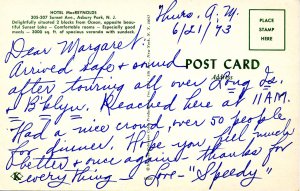 HOTEL MacREYNOLDS
205-207 Sunset Ave., Asbury Park, N. J.
Delightfully situated 2 blocks from Ocean, opposite beautiful Sunset Lake — Comfortable rooms — Especially good meals — 3000 sq. ft. of spacious veranda with sundeck.
Thurs. A.M.
6/21/73
PLACE
STAMP
HERE
POST CARD
Dear Margaret,
Arrived safe & sound
after touring all over Long Is.
& B'klyn. Reached here at 11 A.M.
Had a nice crowd, over 50 people
for dinner. Hope you feel much
better & once again thanks for
everything — Love — "Speedy"